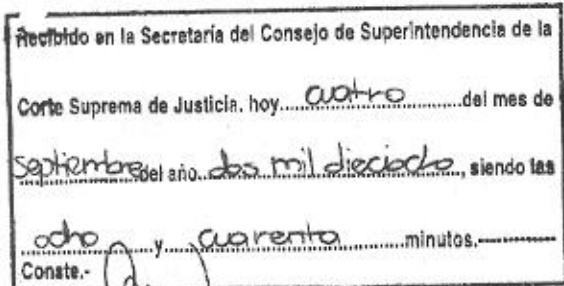 Recibido en la Secretaría del Consejo de Superintendencia de la
Corte Suprema de Justicia. hoy......cuatro......del mes de
septiembre del año..dos mil dieciocho.., siendo las
......ocho......y......cuarenta......minutos.----------
Conste.-